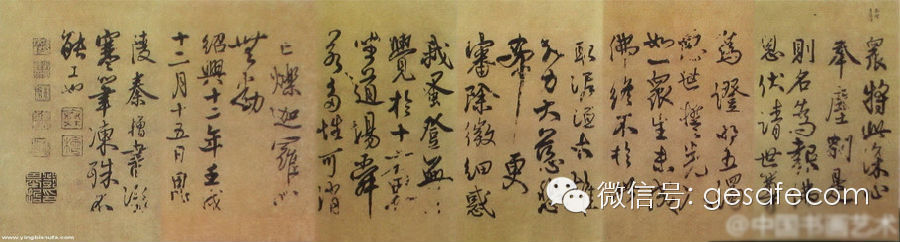 衆將此深心
奉塵剎是
則名為報佛
恩伏請世尊
為證明五濁
惡世誓先入
如一衆生未成
佛終不於此
取泥洹大雄
大力大慈悲
希更
審除微細惑
我蚤登無上
覺於十方界
坐道場舜
若多性可消
亡爍迦羅心
無動
紹興十二年壬戌
十二月十五日恩
陵秦檜書
寒筆凍殊不
能工
微信号: gesafe.com
@中国书画艺术